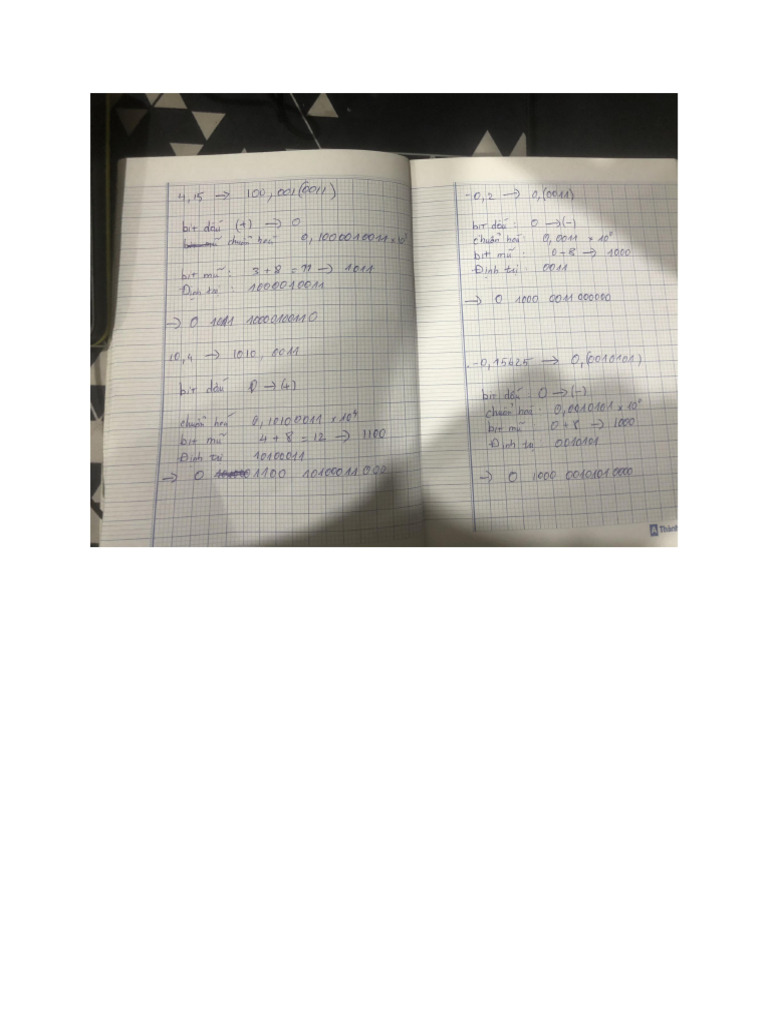 4,15 → 100,001(0011)
bit dấu (+) → 0
chuẩn hoá 0,1000010011 × 10³
bit mũ : 3 + 8 = 11 → 1011
Định trị : 1000010011
→ 0 1011 10000100110
10,4 → 1010,0011
bit dấu 0 → (+)
chuẩn hoá 0,10100011 × 10⁴
bit mũ 4 + 8 = 12 → 1100
Định trị 10100011
→ 0 1100 10100011000
-0,2 → 0,(0011)
bit dấu : 0 → (-)
chuẩn hoá : 0,0011 × 10⁰
bit mũ : 0 + 8 → 1000
Định trị : 0011
→ 0 1000 0011000000
-0,15625 → 0,(0010101)
bit dấu : 0 → (-)
chuẩn hoá : 0,0010101 × 10⁰
bit mũ : 0 + 8 → 1000
Định trị : 0010101
→ 0 1000 00101010000